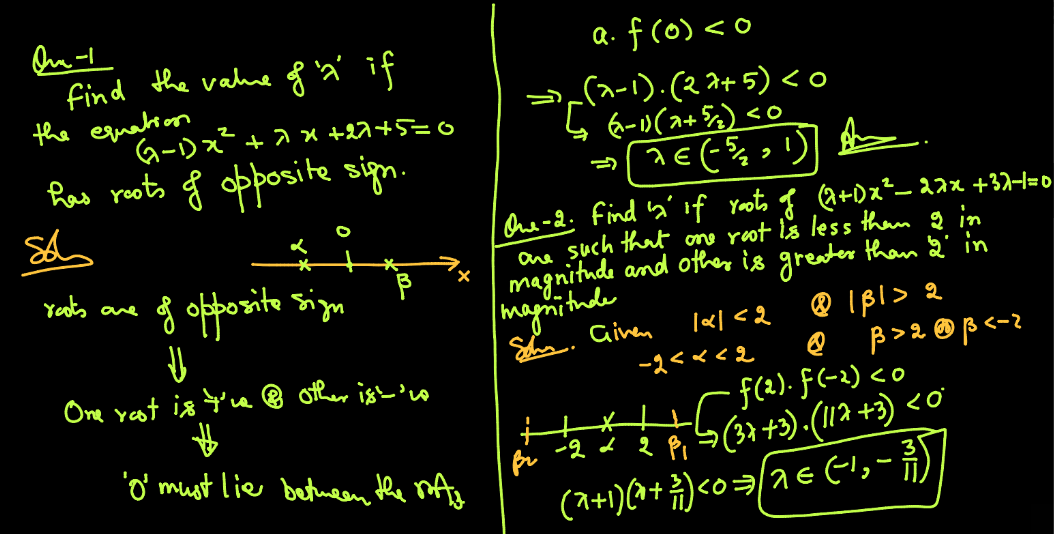 Que-1
Find the value of 'λ' if
the equation
(λ-1)x² + λx + 2λ+5=0
has roots of opposite sign.
Sol
α 0 β x
roots are of opposite sign
⇓
One root is '+'ve & other is '-'ve
⇓
'0' must lie between the
a. f(0) < 0
⇒ (λ-1).(2λ+5) < 0
↳ (λ-1)(λ+5/2) < 0
⇒ λ ∈ (-5/2, 1) Ans.
Que-2. Find 'λ' if roots of (λ+1)x² - 2λx + 3λ-1=0
are such that one root is less than 2 in
magnitude and other is greater than 2 in
magnitude
Soln. Given |α| < 2 & |β| > 2
-2 < α < 2 & β > 2 or β < -2
f(2). f(-2) < 0
β₂ -2 α 2 β₁ ⇒ (3λ+3).(11λ+3) < 0
(λ+1)(λ+3/11) < 0 ⇒ λ ∈ (-1, -3/11)